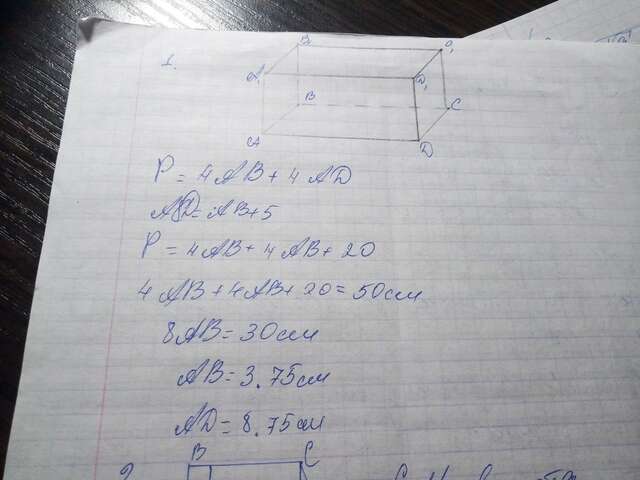 1.
B₁ C₁
A₁ D₁
B C
A D
P = 4AB + 4AD
AD = AB + 5
P = 4AB + 4AB + 20
4AB + 4AB + 20 = 50см
8AB = 30см
AB = 3.75см
AD = 8.75см
2 B C